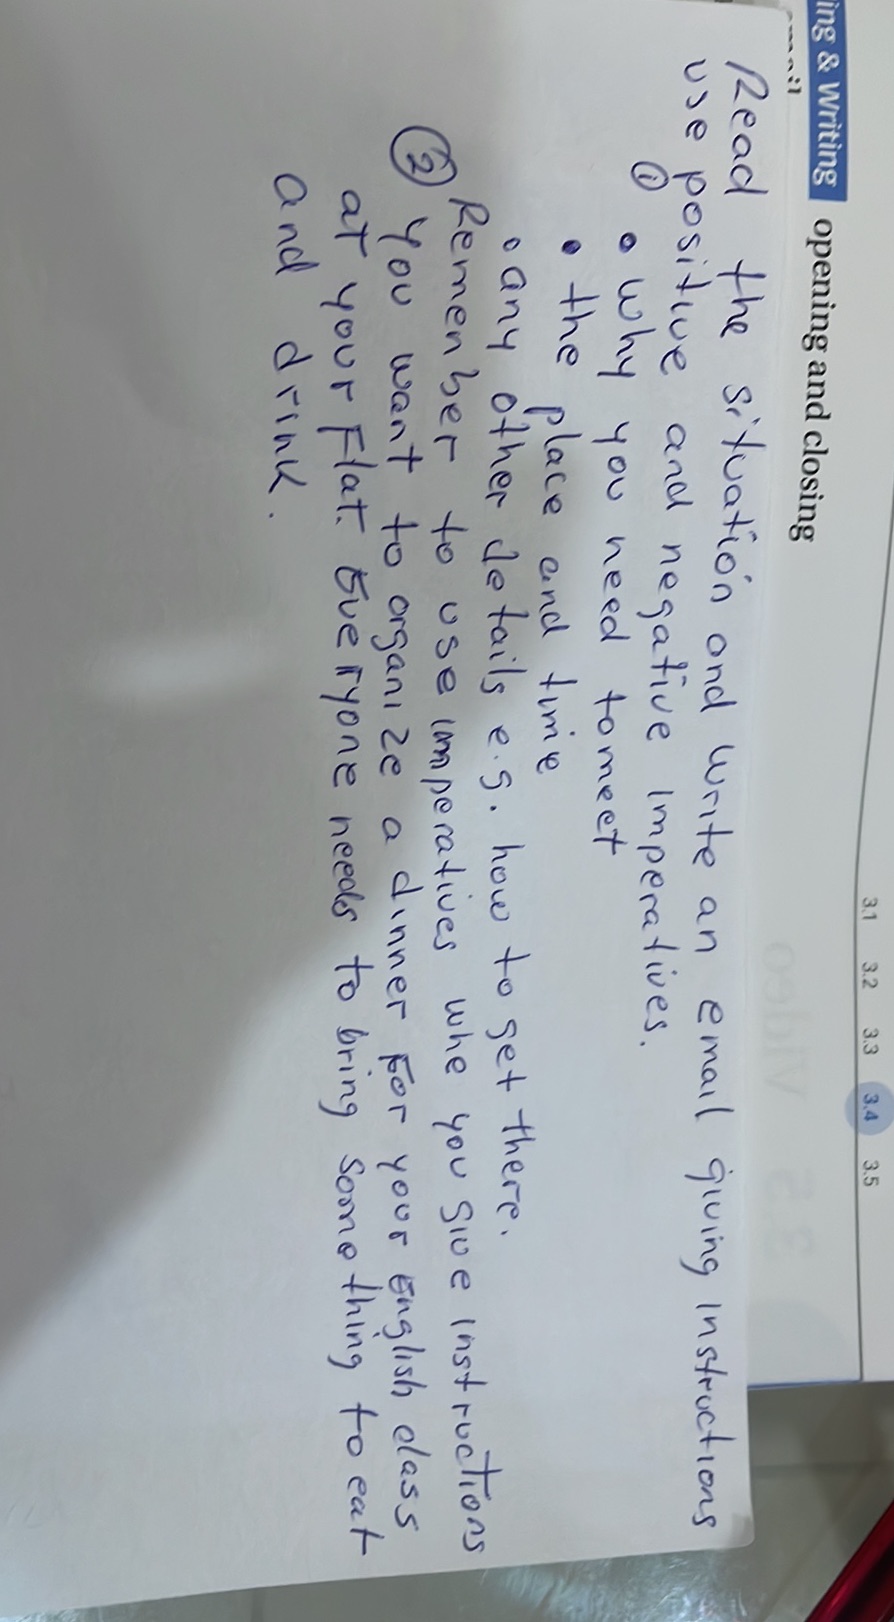 ing & Writing opening and closing
3.1 3.2 3.3 3.4 3.5
Read the situation and write an email giving instructions
use positive and negative imperatives.
① • why you need to meet
• the place and time
• any other details e.g. how to get there.
Remenber to use imperatives whe you give instructions
② you want to organize a dinner for your English class
at your flat. Everyone needs to bring something to eat
and drink.